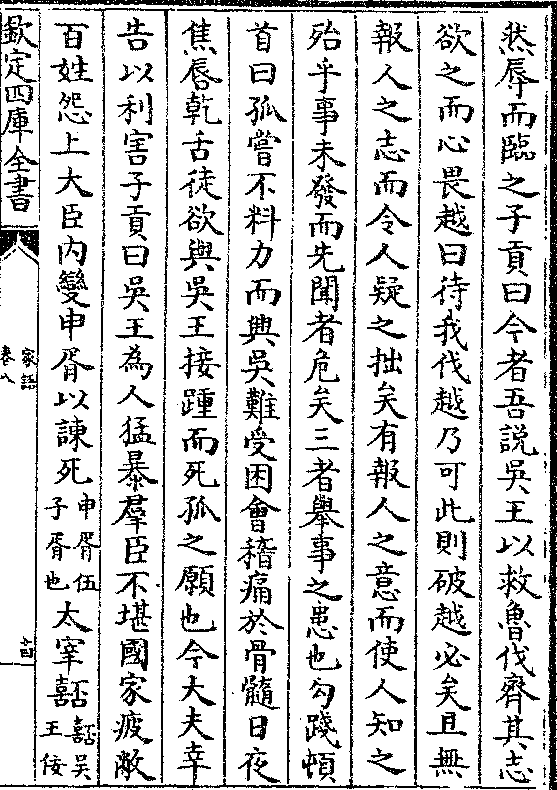 然辱而臨之子貢曰今者吾說吳王以救魯伐齊其志
欲之而心畏越曰待我伐越乃可此則破越必矣且無
報人之志而令人疑之拙矣有報人之意而使人知之
殆乎事未發而先聞者危矣三者舉事之患也勾踐頓
首曰孤嘗不料力而興吳難受困會稽痛於骨髓日夜
焦唇乾舌徒欲與吳王接踵而死孤之願也今大夫幸
告以利害子貢曰吳王為人猛暴羣臣不堪國家疲敝
百姓怨上大臣内變申胥以諫死申胥伍子胥也太宰嚭嚭吳王佞
欽定四庫全書
家語
卷八
十四